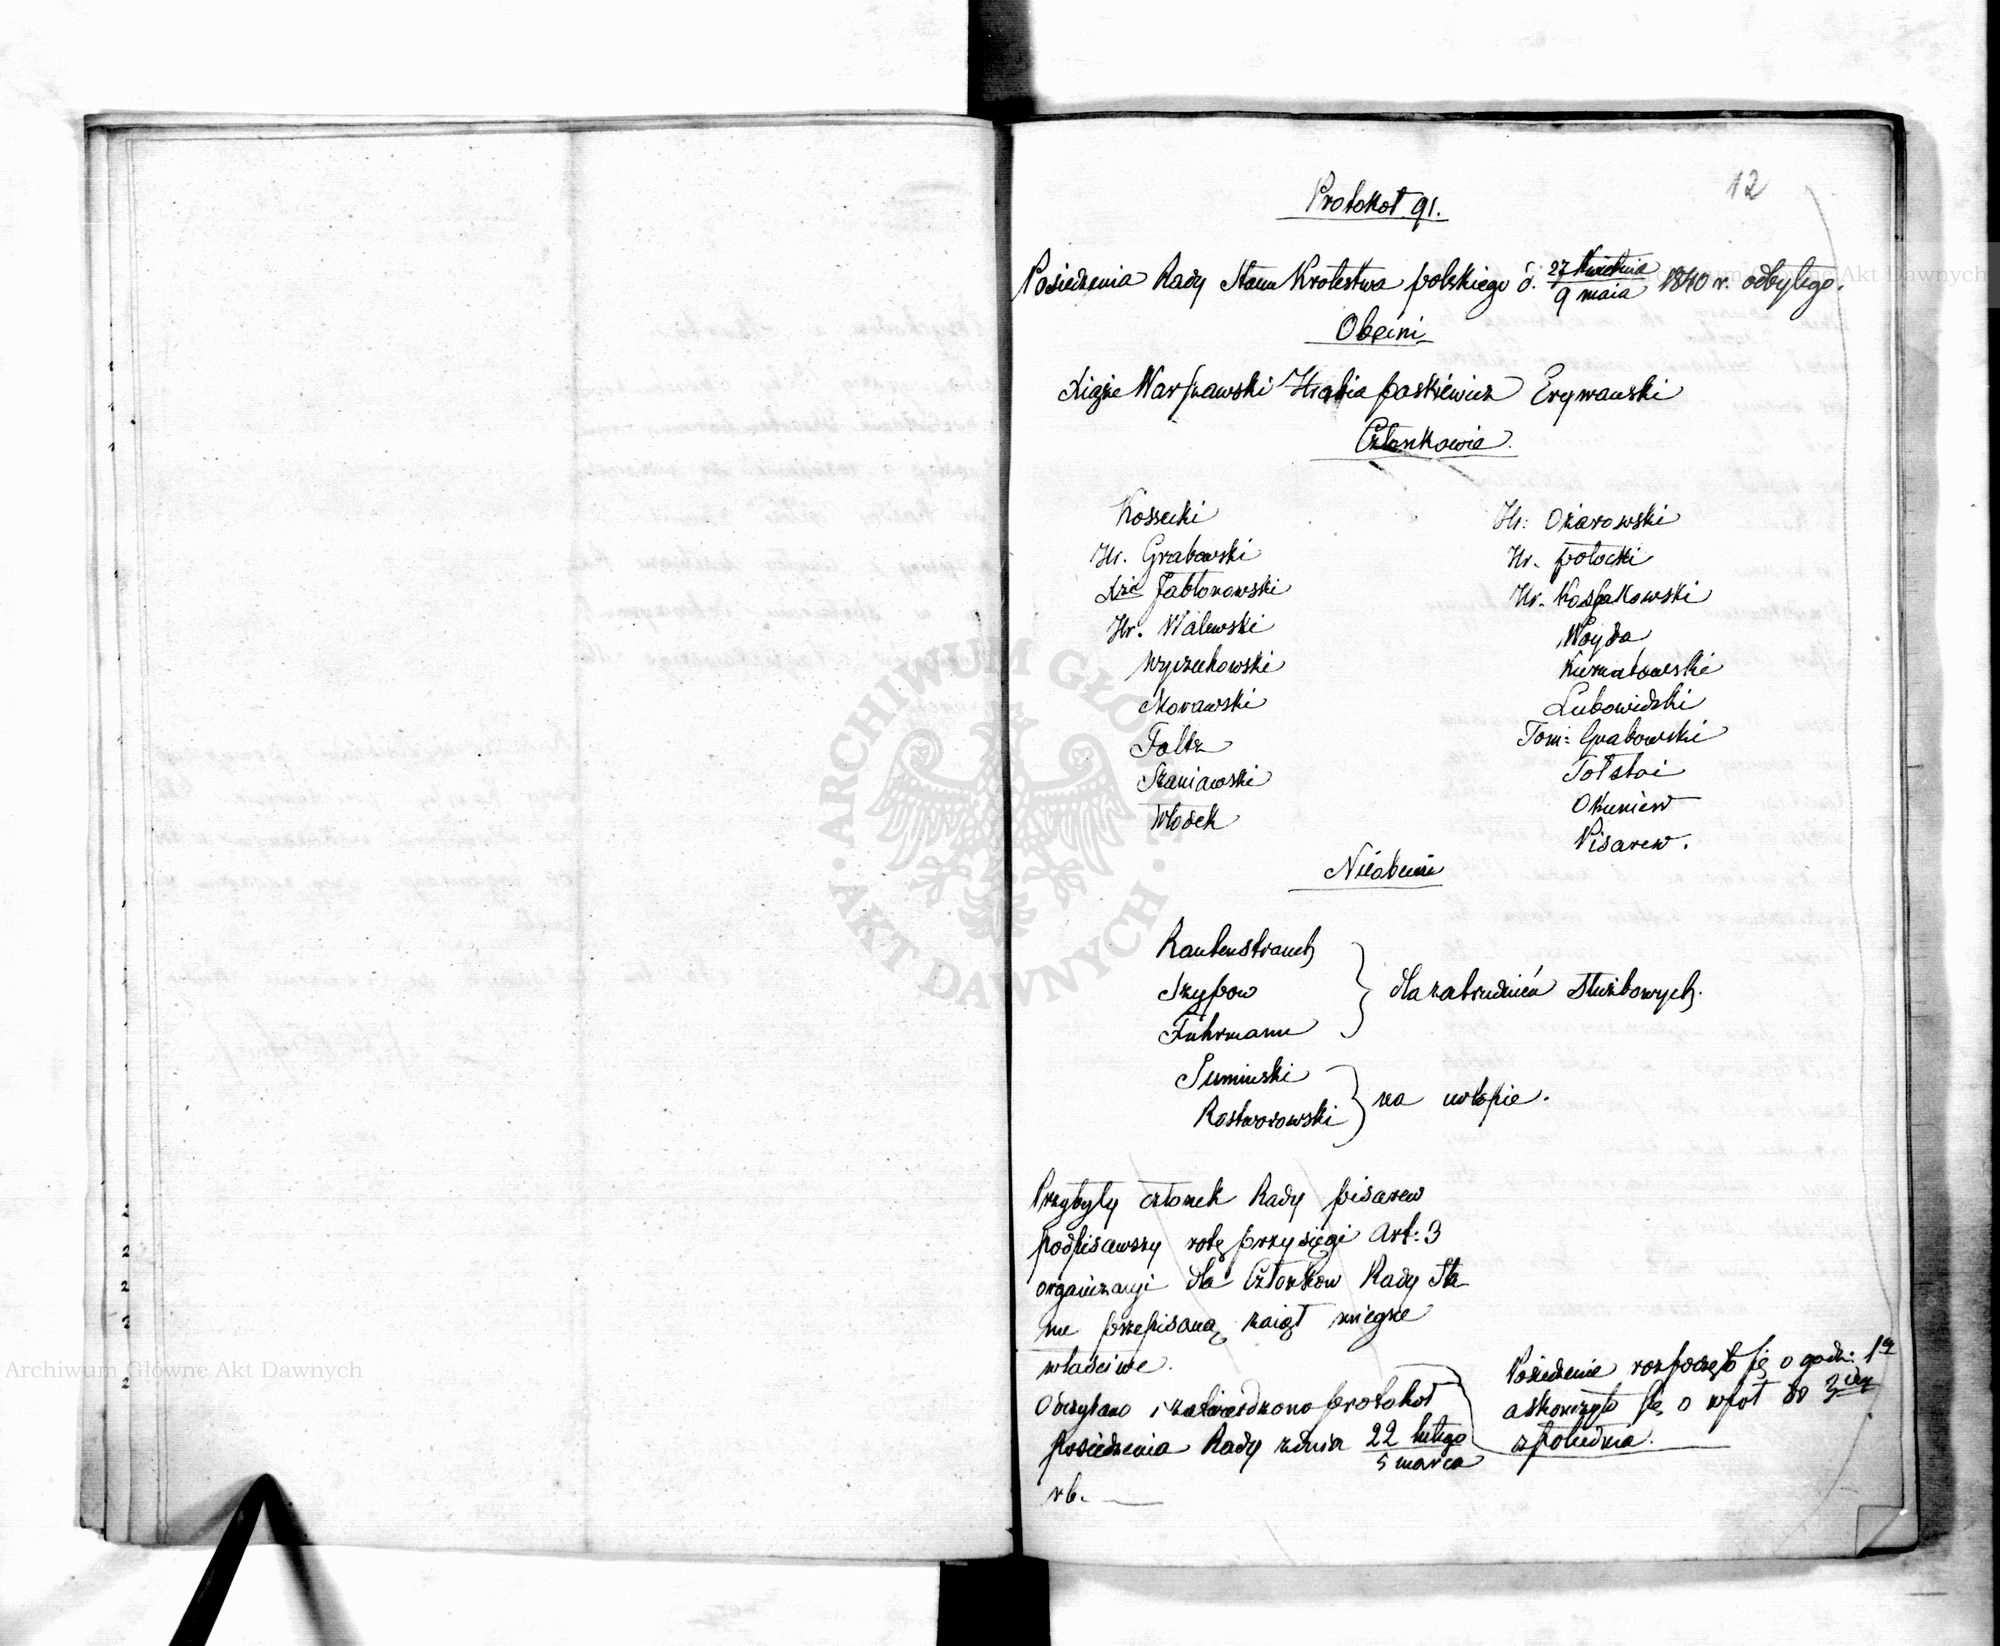 12
Protokoł 91.
Posiedzenia Rady Stanu Krolestwa polskiego d. 27 Kwietnia / 9 maia 1840 r. odbytego.
Obecni
Xiąże Warszawski Hrabia paskiewicz Erywanski
Członkowie.
Kossecki
Hr. Grabowski
Xże Jabłonowski
Hr. Walewski
Wyczechowski
Morawski
Faltz
Szaniawski
Włodek
Hr: Ożarowski
Hr. potocki
Hr. Kossakowski
Woyda
Kurnatowski
Lubowidzki
Tom: Grabowski
Tołstoi
Okuniew
Pisarew.
Nieobecni
Rautenstrauch
Szypow
Fuhrmann
dla zatrudnień Służbowych.
Suminski
Rostworowski
na urlopie.
Przybyły członek Rady pisarew
podpisawszy rotę przysięgi Art: 3
organizacyi dla Członkow Rady Sta
nu przepisaną, zaiął mieysce
właściwe.
Odczytano i zatwierdzono protokoł
posiedzenia Rady z dnia 22 lutego / 5 marca
r b.
Posiedzenie rozpoczęło się o godz: 1ej
a skończyło się o wpoł do 3ciey
z południa.
ARCHIWUM GŁÓWNE AKT DAWNYCH
Archiwum Główne Akt Dawnych
Archiwum Główne Akt Dawnych